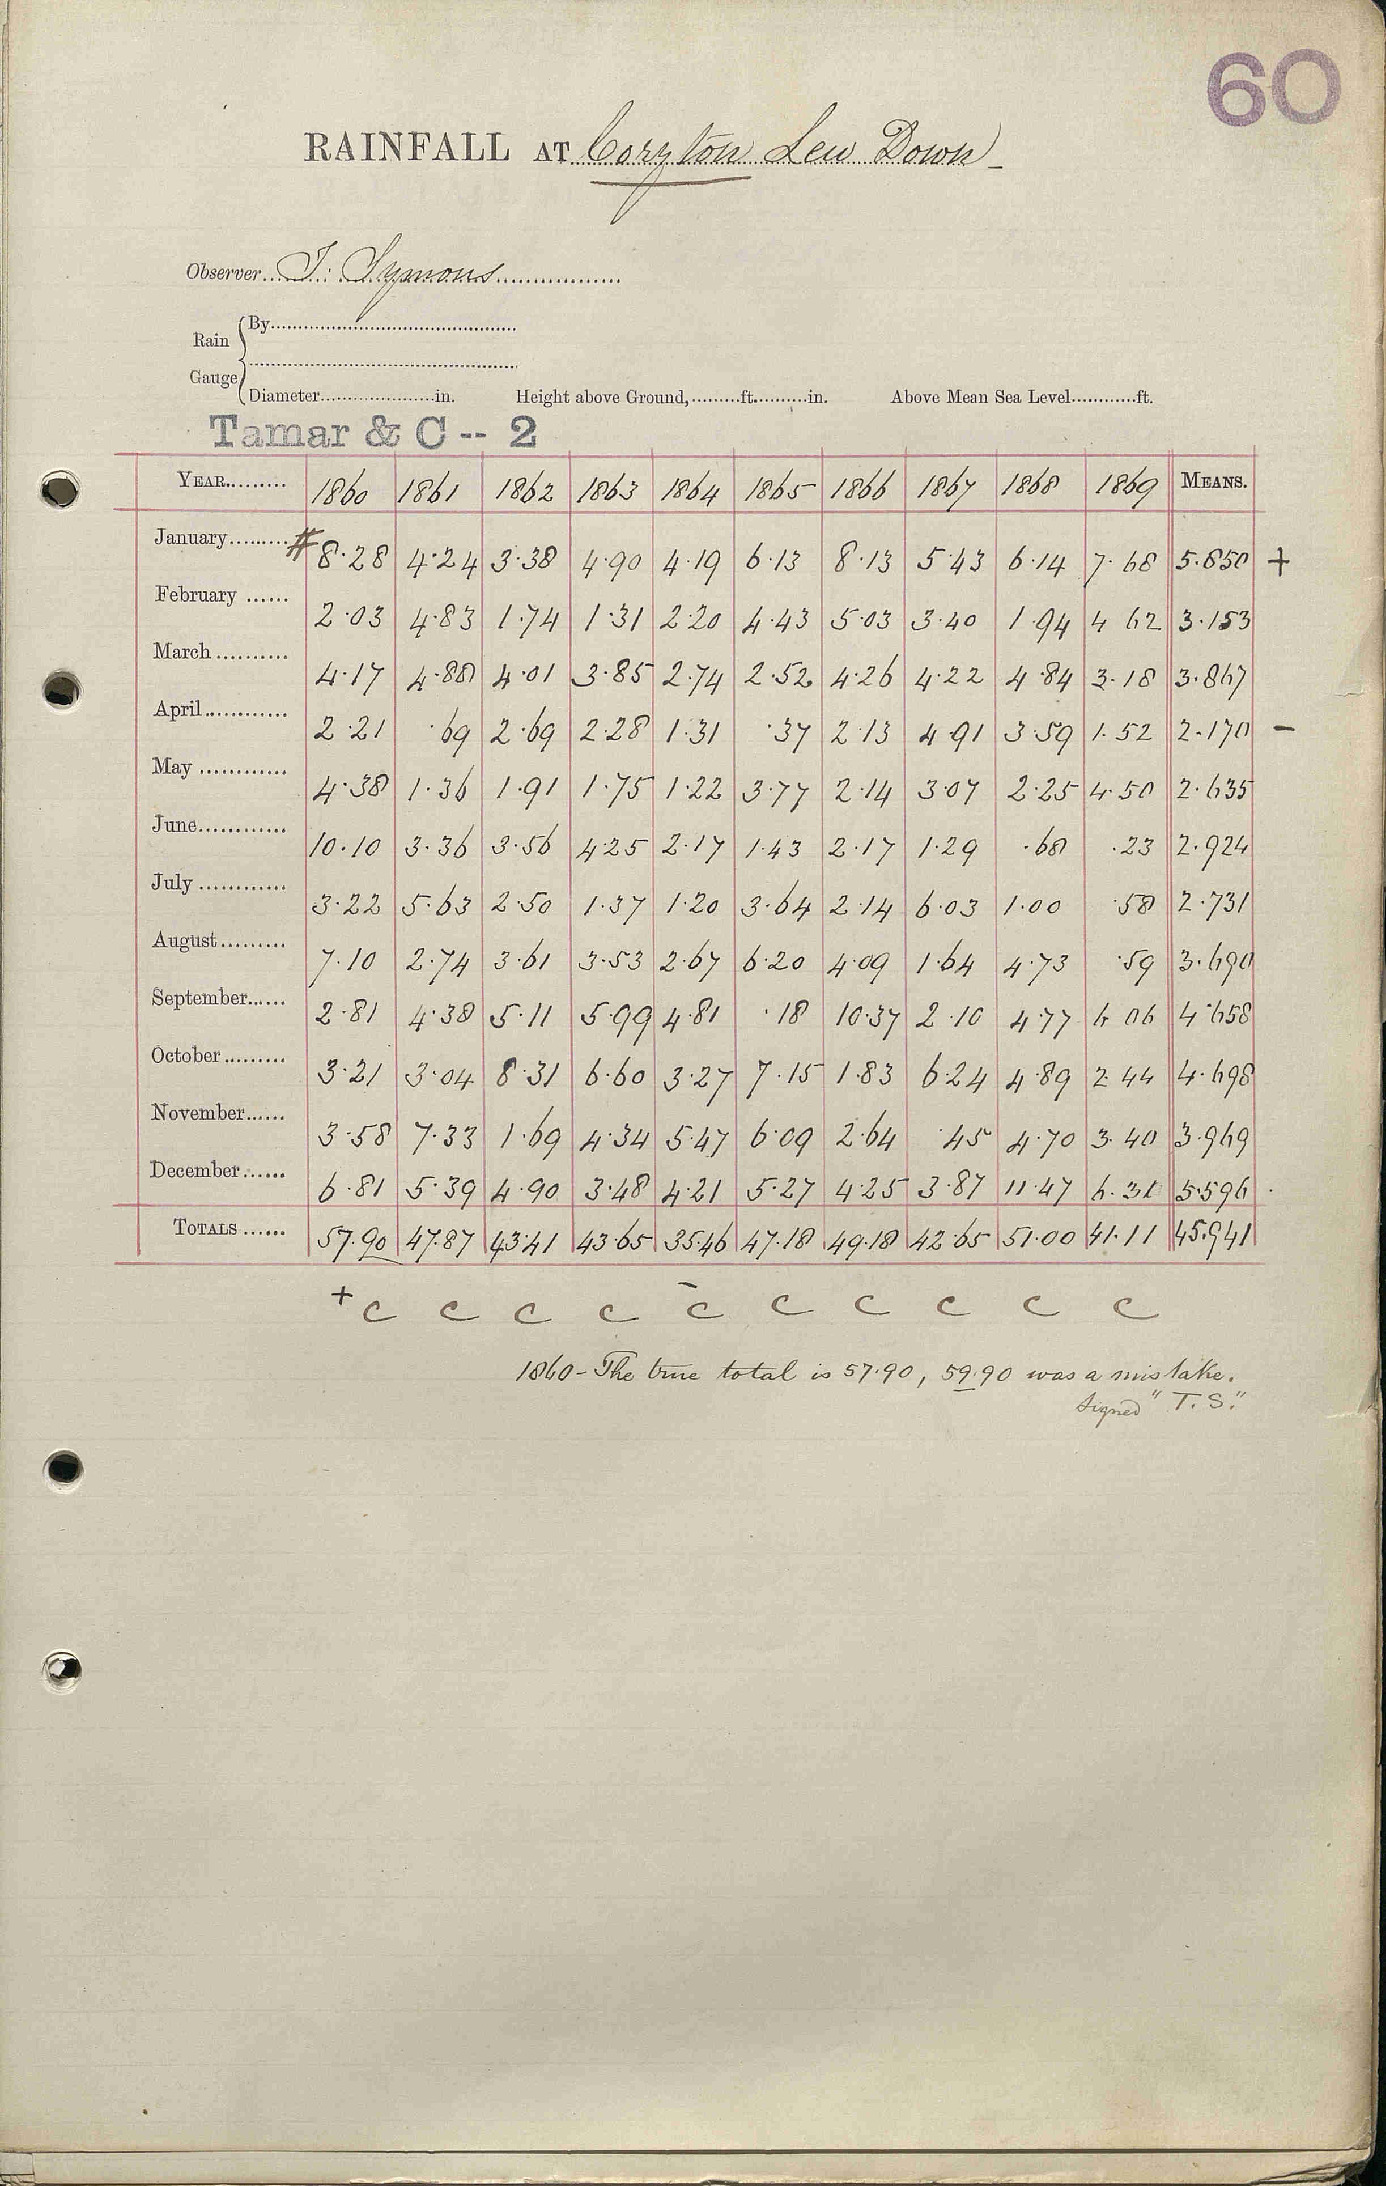 60
RAINFALL AT Coryton Lew Down
Observer T. Symons
Rain Gauge
By
Diameter in. Height above Ground, ft. in. Above Mean Sea Level ft.
Tamar & C -- 2
YEAR 1860 1861 1862 1863 1864 1865 1866 1867 1868 1869 MEANS.
January # 8.28 4.24 3.38 4.90 4.19 6.13 8.13 5.43 6.14 7.68 5.850 +
February 2.03 4.83 1.74 1.31 2.20 4.43 5.03 3.40 1.94 4 62 3.153
March 4.17 4.88 4.01 3.85 2.74 2.52 4.26 4.22 4.84 3.18 3.867
April 2.21 .69 2.69 2.28 1.31 .37 2.13 4.91 3.59 1.52 2.170 -
May 4.38 1.36 1.91 1.75 1.22 3.77 2.14 3.07 2.25 4.50 2.635
June 10.10 3.36 3.56 4.25 2.17 1.43 2.17 1.29 .68 .23 2.924
July 3.22 5.63 2.50 1.37 1.20 3.64 2.14 6.03 1.00 .58 2.731
August 7.10 2.74 3.61 3.53 2.67 6.20 4.09 1.64 4.73 .59 3.690
September 2.81 4.38 5.11 5.99 4.81 .18 10.37 2.10 4.77 6 06 4.658
October 3.21 3.04 8.31 6.60 3.27 7.15 1.83 6.24 4.89 2 44 4.698
November 3.58 7.33 1.69 4.34 5.47 6.09 2.64 .45 4.70 3.40 3.969
December 6.81 5.39 4.90 3.48 4.21 5.27 4.25 3.87 11.47 6.31 5.596
TOTALS 57.90 47.87 43.41 43.65 35.46 47.18 49.18 42.65 51.00 41.11 45.941
+ C C C C - C C C C C C
1860 - The true total is 57.90, 59.90 was a mistake.
Signed "T.S."